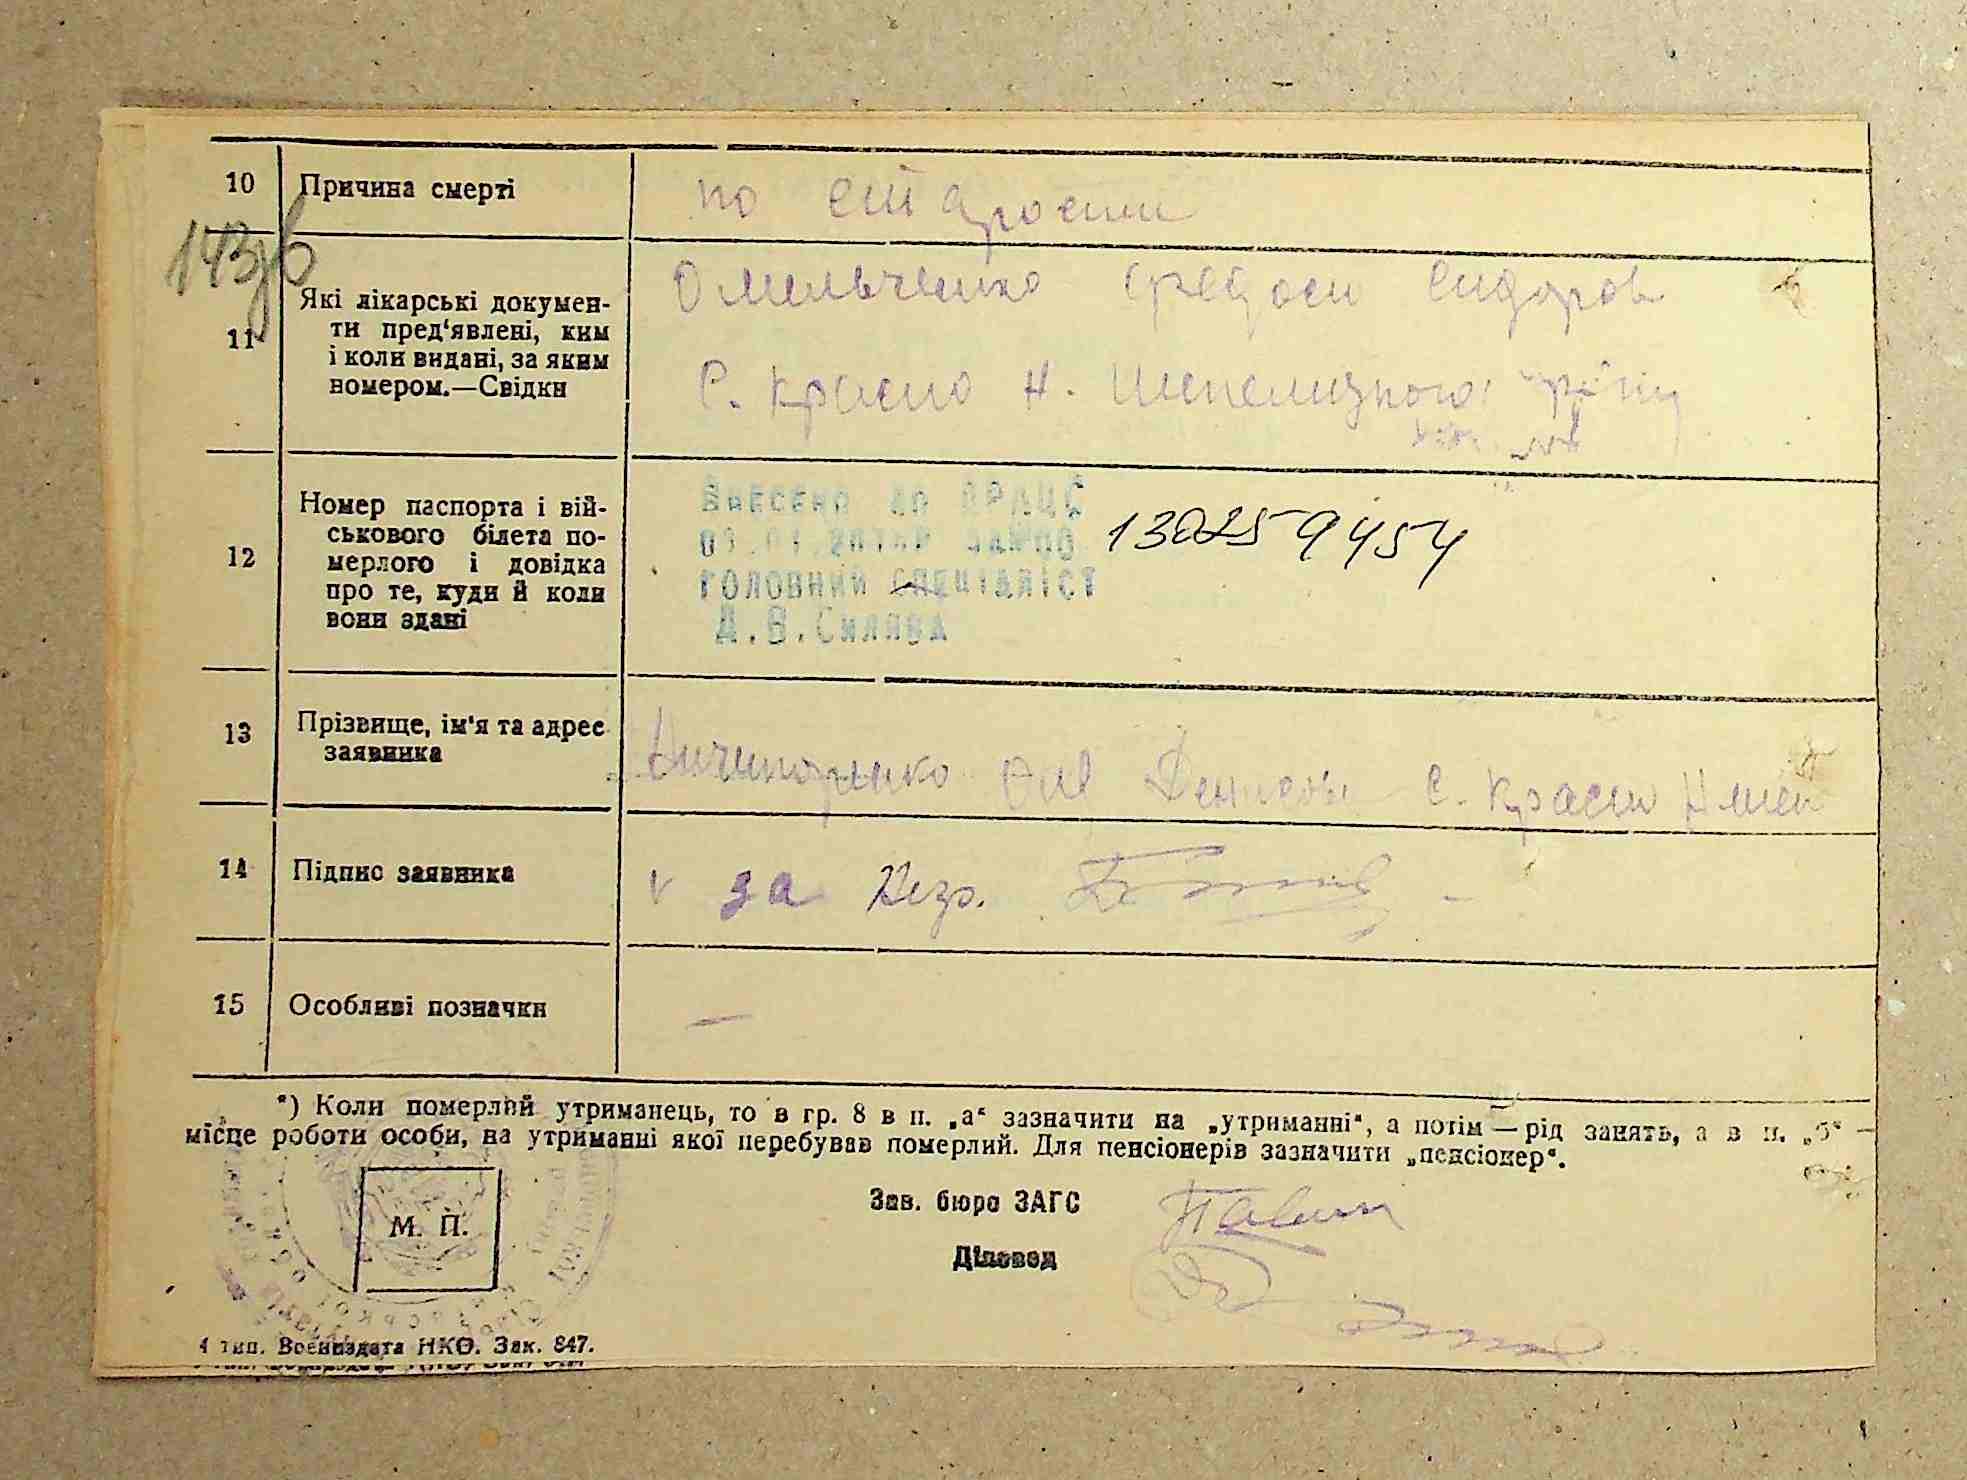 10 Причина смерті по старости
143зв
11 Які лікарські докумен-
ти пред‘явлені, ким
і коли видані, за яким
номером.—Свідки
Омельченко Федоси Сидоров
с. Красно Н. Шепелицкого
12 Номер паспорта і вій-
ськового білета по-
мерлого і довідка
про те, куди й коли
вони здані
Внесено до ДРАЦС
за №00 130259454
головний спеціаліст
13 Прізвище, ім'я та адрес
заявника
Ничипоренко с. Красно Н Шеп
14 Підпис заявника v за
15 Особливі позначки —
*) Коли померлий утриманець, то в гр. 8 в п. „а“ зазначити на „утриманні“, а потім — рід занять, а в п. „б“ —
місце роботи особи, на утриманні якої перебував померлий. Для пенсіонерів зазначити „пенсіонер“.
М. П.
Зав. бюро ЗАГС
Діловод
4 тип. Воениздата НКО. Зак. 847.